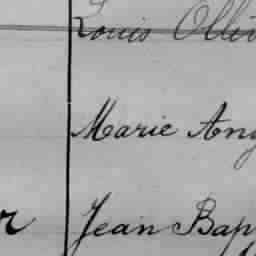 Louis Olliv
Marie Ang
r Jean Bap